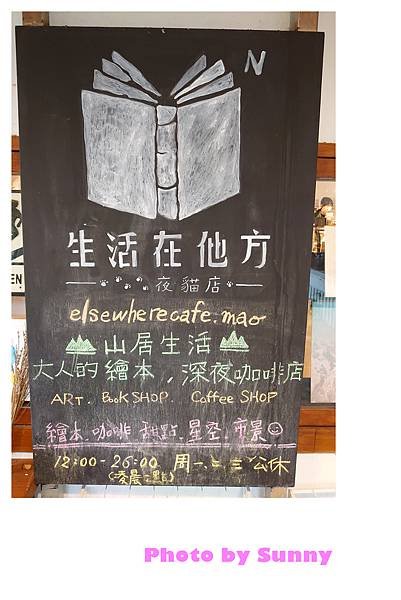 N
生活在他方
夜貓店
elsewherecafe.mao
山居生活
大人的繪本，深夜咖啡店
ART. BOOK SHOP. Coffee SHOP
繪本.咖啡.甜點.星空.市景
12:00-26:00 周一.二.三公休
(凌晨二點)
EN
Photo by Sunny